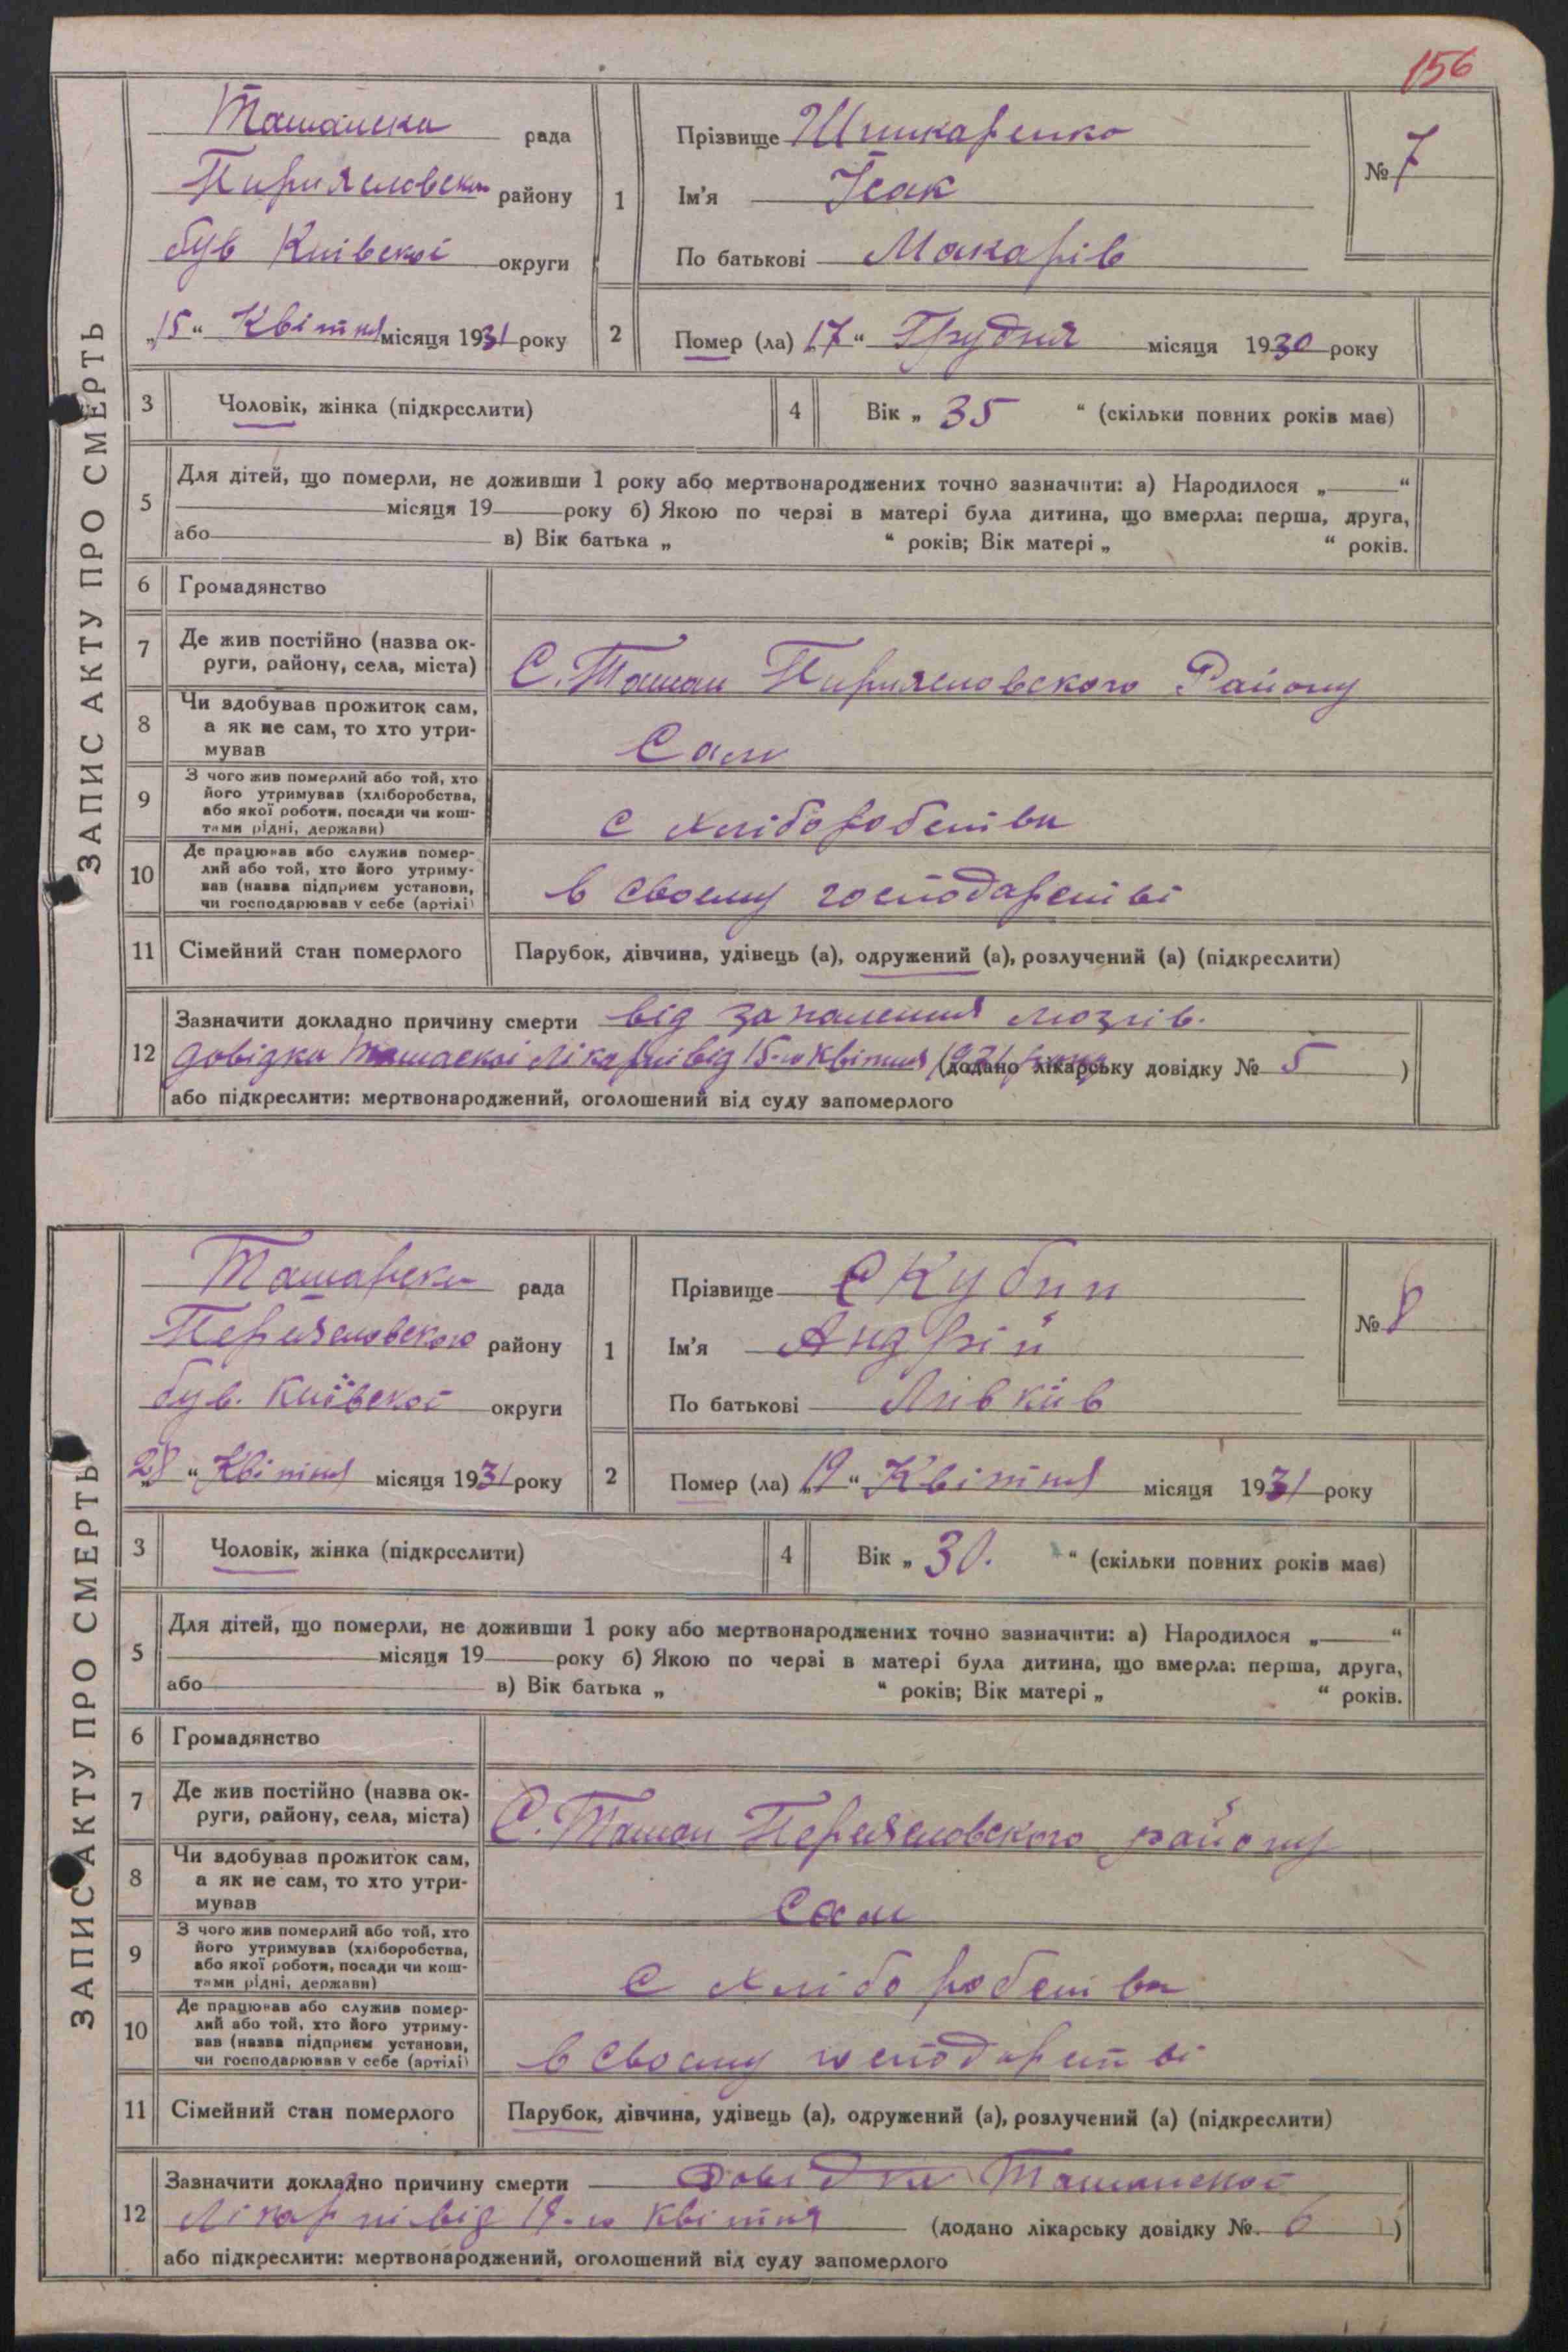 156
ЗАПИС АКТУ ПРО СМЕРТЬ
Ташанска рада
Пириясловськи району
був Київскої округи
„15“ Квітня місяця 1931 року
1
Прізвище Шинкаренко
Ім'я Ісак
По батькові Макарів
№ 7
2 Помер (ла) „17“ Грудня місяця 1930 року
3 Чоловік, жінка (підкреслити)
4 Вік „ 35 “ (скільки повних років має)
5 Для дітей, що померли, не доживши 1 року або мертвонароджених точно зазначити: а) Народилося „——“
місяця 19 року б) Якою по черзі в матері була дитина, що вмерла: перша, друга,
або в) Вік батька „ “ років; Вік матері „ “ років.
6 Громадянство
7 Де жив постійно (назва ок-
руги, району, села, міста)
С. Ташан Пириясловского Району
8 Чи здобував прожиток сам,
а як не сам, то хто утри-
мував
Сам
9 З чого жив померлий або той, хто
його утримував (хліборобства,
або якої роботи, посади чи кош-
тами рідні, держави)
с хліборобства
10 Де працював або служив помер-
лий або той, хто його утриму-
вав (назва підприєм установи,
чи господарював у себе (артілі)
в своему господарстві
11 Сімейний стан померлого
Парубок, дівчина, удівець (а), одружений (а), розлучений (а) (підкреслити)
12 Зазначити докладно причину смерти від запаления мозгів.
довідка Ташаскої лікарні від 15-го Квітня 1931 року (додано лікарську довідку № 5 )
або підкреслити: мертвонароджений, оголошений від суду запомерлого
ЗАПИС АКТУ ПРО СМЕРТЬ
Ташарска рада
Переяславского району
був. Київскої округи
„28“ Квітня місяця 1931 року
1
Прізвище Скубий
Ім'я Андрій
По батькові Лівків
№ 8
2 Помер (ла) „19“ Квітня місяця 1931 року
3 Чоловік, жінка (підкреслити)
4 Вік „ 30. “ (скільки повних років має)
5 Для дітей, що померли, не доживши 1 року або мертвонароджених точно зазначити: а) Народилося „——“
місяця 19 року б) Якою по черзі в матері була дитина, що вмерла: перша, друга,
або в) Вік батька „ “ років; Вік матері „ “ років.
6 Громадянство
7 Де жив постійно (назва ок-
руги, району, села, міста)
С. Ташан Переяславского району
8 Чи здобував прожиток сам,
а як не сам, то хто утри-
мував
Сам
9 З чого жив померлий або той, хто
його утримував (хліборобства,
або якої роботи, посади чи кош-
тами рідні, держави)
с хліборобства
10 Де працював або служив помер-
лий або той, хто його утриму-
вав (назва підприєм установи,
чи господарював у себе (артілі)
в своему господарстві
11 Сімейний стан померлого
Парубок, дівчина, удівець (а), одружений (а), розлучений (а) (підкреслити)
12 Зазначити докладно причину смерти Довідка Ташанскої
Лікарні від 19-го Квітня (додано лікарську довідку № 6 )
або підкреслити: мертвонароджений, оголошений від суду запомерлого